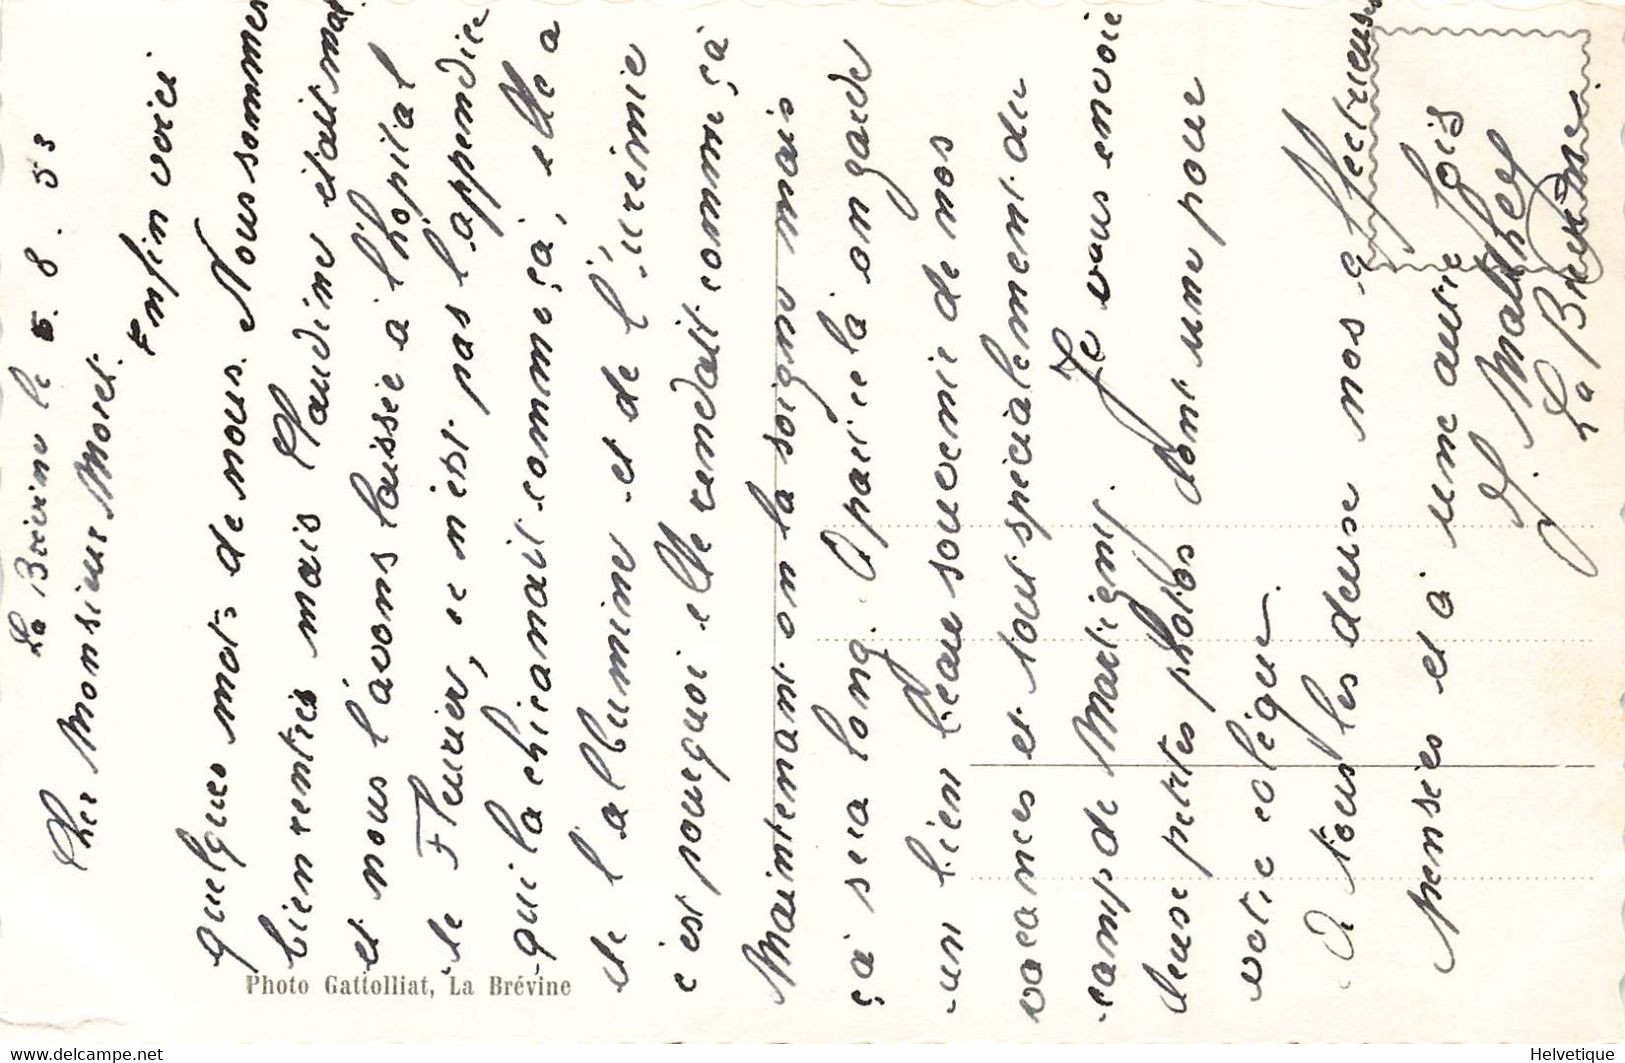 La Brévine le 5. 8. 53
Cher Monsieur Moret.
Enfin voici
quelques mots de nous. Nous sommes
bien rentrés mais Claudine etait mal
et nous l'avons laissée à l'hôpital
de Fleurier, ce n'est pas l'appendice
qui la chicanait comme ça, elle a
de l'albumine et de l'urrémie
c'est pourquoi elle rendait comme ça
Maintenant on la soigne mais
ça sera long. Apart cela on garde
un bien beau souvenir de nos
vacances et tout spécialement du
camp de Martigny. Je vous envoie
deux petites photos dont une pour
votre colègue.
A tous les deux nos affectueuses
pensées et à une autre fois
J. Matthey
La Brévine.
Photo Gattolliat, La Brévine
www.delcampe.net
Helvetique